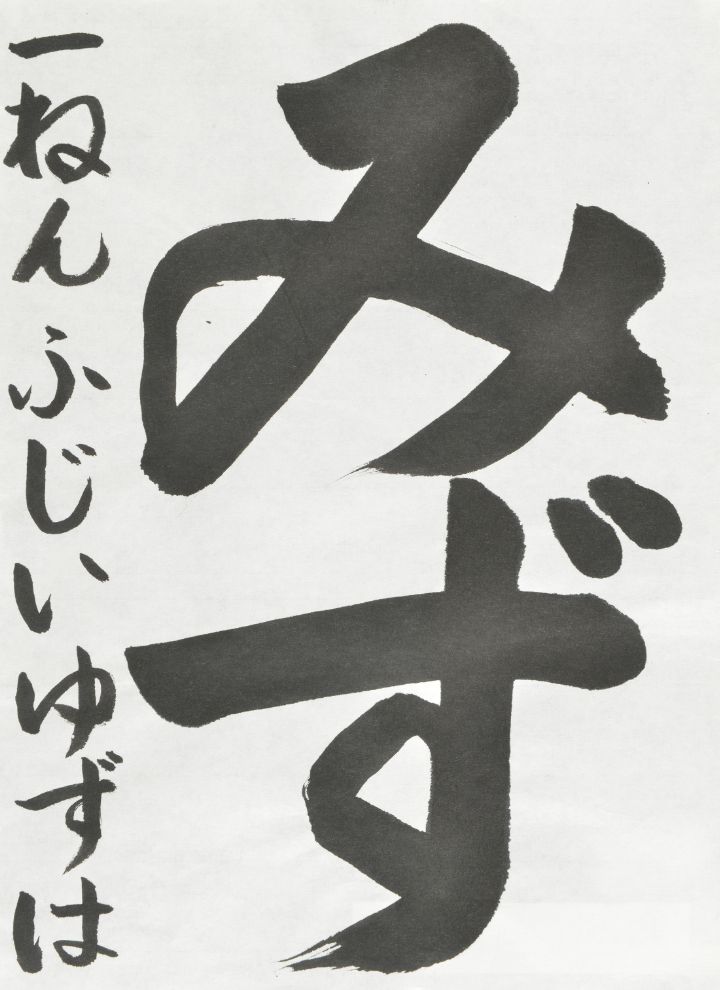 みず
一ねんふじいゆずは